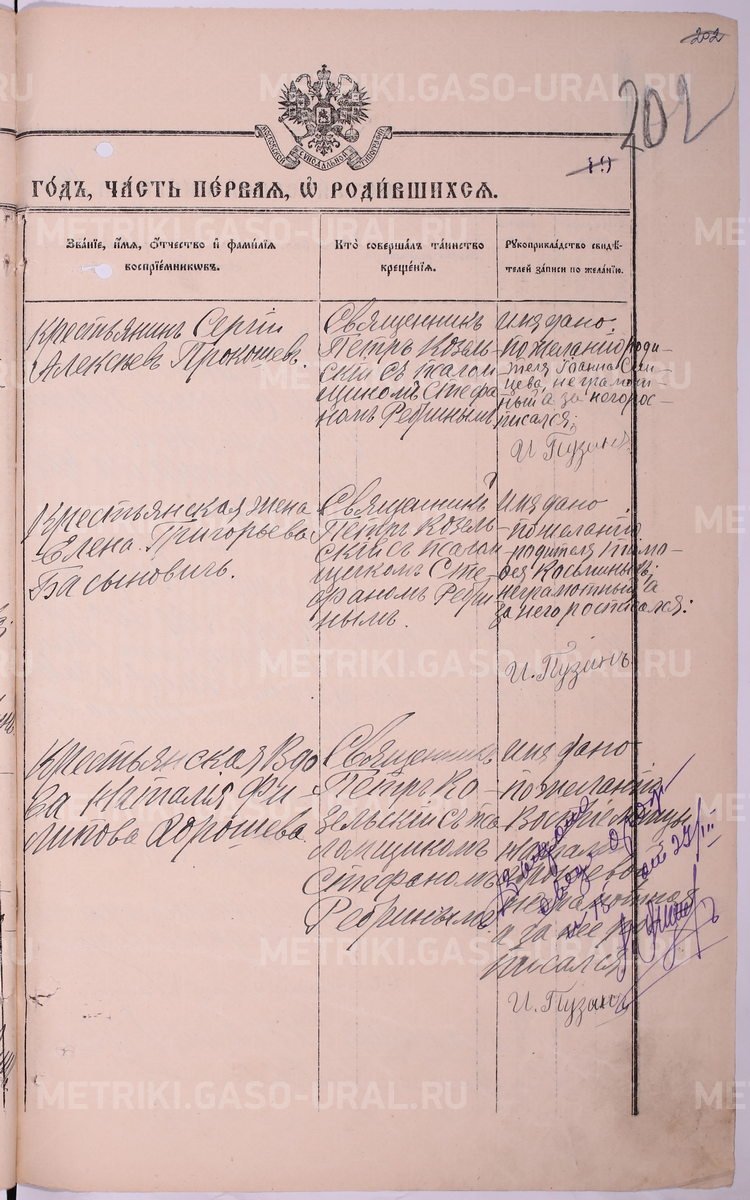 202
202
МОСКОВСКОЙ СУНОДАЛЬНОЙ ТИПОГРАФІИ
19
ГО́ДЪ, ЧА́СТЬ ПЕ́РВАЯ, Ѡ҆ РОДИ́ВШИХСЯ.
Зва́ніе, и҆́мя, ѻ҆́тчество и҆ фами́лія
воспріе́мникѡвъ.
Кто̀ соверша́лъ та́инство
креще́нія.
Рꙋкоприкла́дство свидѣ́-
телей за́писи по жела́нію.
Крестьянинъ Сергій
Алексѣевъ Прокошевъ.
Священникъ
Петръ Козель-
скій съ псалом
щикомъ Стефа
номъ Ребринымъ
Имя дано
по желанію роди-
теля Іоанна
неграмот-
ный а за него рос-
писался:
И Пузинъ
Крестьянская жена
Елена Григорьева
Басыновичъ.
Священникъ
Петръ Козель-
скій съ псалом
щикомъ Сте-
фаномъ Ребри
нымъ.
Имя дано
по желанію
родителя Тимо-
фея
неграмотный а
за него росписался:
И. Пузинъ
Крестьянская вдо
ва Наталія Фи-
липова Хорошева.
Священникъ
Петръ Ко-
зельскій съ пса
ломщикомъ
Стефаномъ
Ребринымъ
Имя дано
по желанію
неграмотная
а за нее рос
писался
И. Пузинъ
METRIKI.GASO-URAL.RU